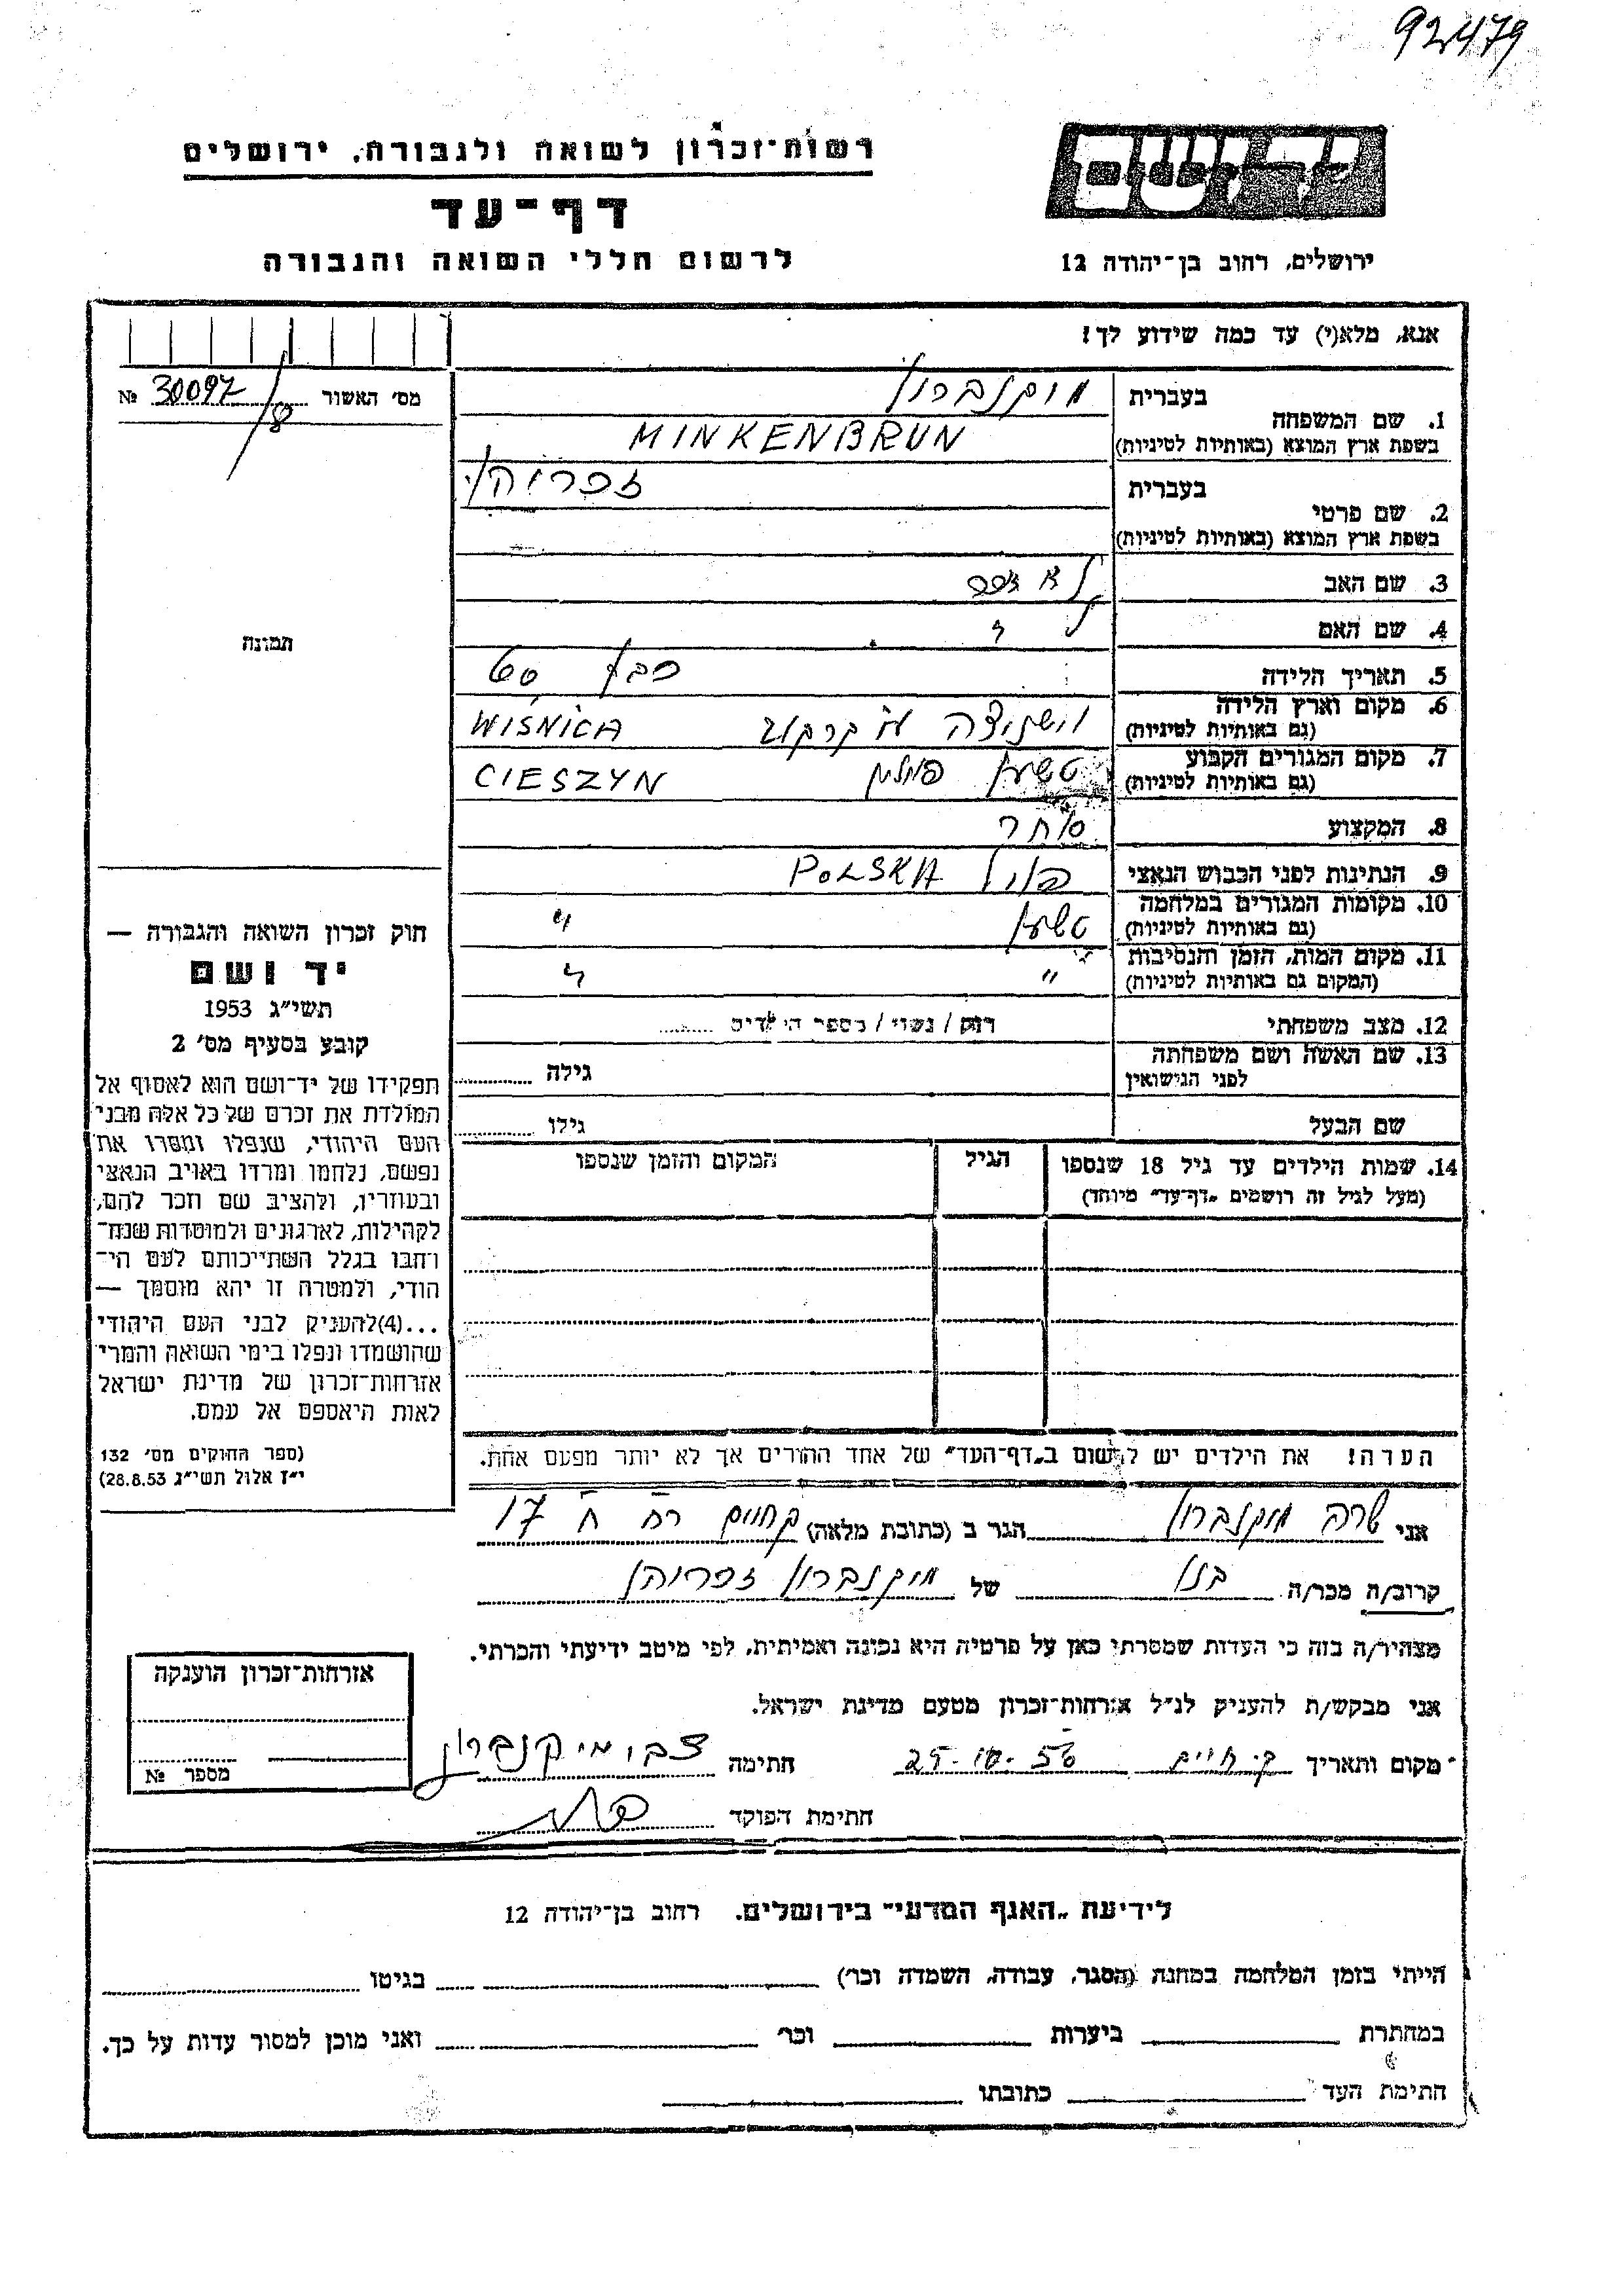 92479
רשות־זכרון לשואה ולגבורה, ירושלים
דף־עד
לרשום חללי השואה והגבורה
יד ושם
ירושלים, רחוב בן־יהודה 12
אנא, מלא(י) עד כמה שידוע לך!
מס׳ האשור № 30097/8
תמונה
1. שם המשפחה
בעברית
בשפת ארץ המוצא (באותיות לטיניות) MINKENBRUN
2. שם פרטי
בעברית
בשפת ארץ המוצא (באותיות לטיניות)
3. שם האב לא
4. שם האם
5. תאריך הלידה כבן 60
6. מקום וארץ הלידה
(גם באותיות לטיניות) WIŚNICA
7. מקום המגורים הקבוע
(גם באותיות לטיניות) טשען פולין CIESZYN
8. המקצוע סוחר
9. הנתינות לפני הכבוש הנאצי POLSKA
10. מקומות המגורים במלחמה
(גם באותיות לטיניות) טשען "
11. מקום המות, הזמן והנסיבות
(המקום גם באותיות לטיניות) " "
12. מצב משפחתי רווק / נשוי / מספר הילדים
13. שם האשה ושם משפחתה
לפני הנישואין גילה
שם הבעל גילו
14. שמות הילדים עד גיל 18 שנספו
(מעל לגיל זה רושמים „דף־עד״ מיוחד)
הגיל
המקום והזמן שנספו
הערה! את הילדים יש לרשום ב„דף־העד״ של אחד ההורים אך לא יותר מפעם אחת.
חוק זכרון השואה והגבורה —
יד ושם
תשי״ג 1953
קובע בסעיף מס׳ 2
תפקידו של יד־ושם הוא לאסוף אל
המולדת את זכרם של כל אלה מבני
העם היהודי, שנפלו ומסרו את
נפשם, נלחמו ומרדו באויב הנאצי
ובעוזריו, ולהציב שם וזכר להם,
לקהילות, לארגונים ולמוסדות שנח־
רחבו בגלל השתייכותם לעם הי־
הודי, ולמטרה זו יהא מוסמך —
...(4)להעניק לבני העם היהודי
שהושמדו ונפלו בימי השואה והמרי
אזרחות־זכרון של מדינת ישראל
לאות היאספם אל עמם.
(ספר החוקים מס׳ 132
י״ז אלול תשי״ג 28.8.53)
אני שרה הגר ב (כתובת מלאה) ק חיים רח 17
קרוב/ה מכר/ה של
מצהיר/ה בזה כי העדות שמסרתי כאן על פרטיה היא נכונה ואמיתית, לפי מיטב ידיעתי והכרתי.
אני מבקש/ת להעניק לנ״ל אזרחות־זכרון מטעם מדינת ישראל.
מקום ותאריך ק. חיים חתימה
חתימת הפוקד
אזרחות־זכרון הוענקה
מספר №
לידיעת „האגף המדעי״ בירושלים. רחוב בן־יהודה 12
הייתי בזמן המלחמה במחנה (הסגר, עבודה, השמדה וכו׳) בגיטו
במחתרת ביערות וכו׳ ואני מוכן למסור עדות על כך.
חתימת העד כתובתו